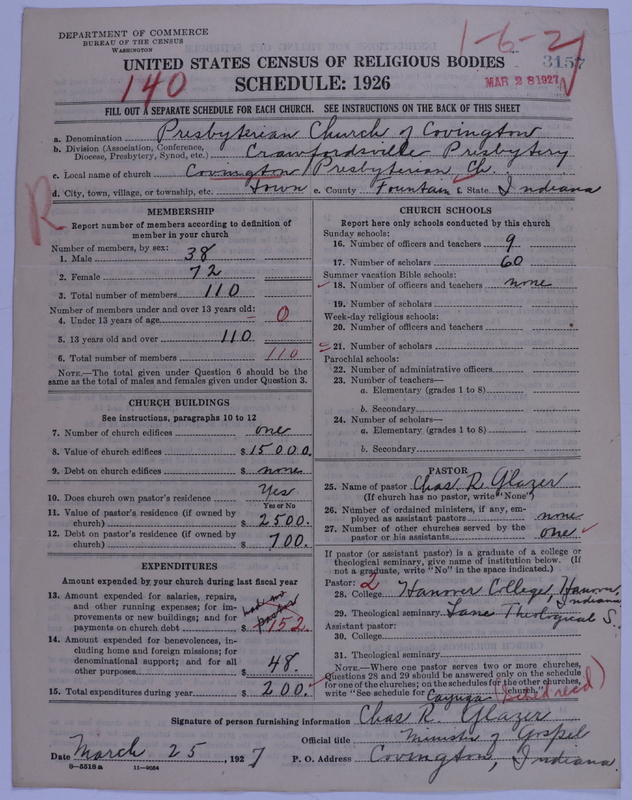 DEPARTMENT OF COMMERCE
BUREAU OF THE CENSUS
WASHINGTON
1-6-2
3157
MAR 28 1927
UNITED STATES CENSUS OF RELIGIOUS BODIES
140
SCHEDULE: 1926
FILL OUT A SEPARATE SCHEDULE FOR EACH CHURCH. SEE INSTRUCTIONS ON THE BACK OF THIS SHEET
a. Denomination Presbyterian Church of Covington
b. Division (Association, Conference, Diocese, Presbytery, Synod, etc.) Crawfordsville Presbytery
c. Local name of church Covington Presbyterian Ch.
d. City, town, village, or township, etc. Town e. County Fountain f. State Indiana
R
MEMBERSHIP
Report number of members according to definition of
member in your church
Number of members, by sex:
1. Male 38
2. Female 72
3. Total number of members 110
Number of members under and over 13 years old:
4. Under 13 years of age 0
5. 13 years old and over 110
6. Total number of members 110
NOTE.—The total given under Question 6 should be
same as the total of males and females given under Question 3.
CHURCH BUILDINGS
See instructions, paragraphs 10 to 12
7. Number of church edifices one
8. Value of church edifices $15000.
9. Debt on church edifices $ none
10. Does church own pastor's residence Yes
Yes or No
11. Value of pastor's residence (if owned by
church) $2500.
12. Debt on pastor's residence (if owned by
church) 700.
EXPENDITURES
Amount expended by your church during last fiscal year
13. Amount expended for salaries, repairs,
and other running expenses; for im-
provements or new buildings; and for
payments on church debt $ had no pastor 152.
14. Amount expended for benevolences, in-
cluding home and foreign missions; for
denominational support; and for all
other purposes $ 48.
15. Total expenditures during year $ 200.
CHURCH SCHOOLS
Report here only schools conducted by this church
Sunday schools:
16. Number of officers and teachers 9
17. Number of scholars 60
Summer vacation Bible schools:
18. Number of officers and teachers none
19. Number of scholars
Week-day religious schools:
20. Number of officers and teachers
21. Number of scholars
Parochial schools:
22. Number of administrative officers
23. Number of teachers—
a. Elementary (grades 1 to 8)
b. Secondary
24. Number of scholars—
a. Elementary (grades 1 to 8)
b. Secondary
PASTOR
25. Name of pastor Chas R. Glazer
(If church has no pastor, write "None")
26. Number of ordained ministers, if any, em-
ployed as assistant pastors none
27. Number of other churches served by the
pastor or his assistants one
If pastor (or assistant pastor) is a graduate of a college or
theological seminary, give name of institution below. (If
not a graduate, write "No" in the space indicated.)
Pastor: 2
28. College Hanover College, Hanover, Indiana
29. Theological seminary Lane Theological S.
Assistant pastor:
30. College
31. Theological seminary
NOTE.—Where one pastor serves two or more churches,
Questions 28 and 29 should be answered only on the schedule
for one of the churches; on the schedules for the other churches,
write "See schedule for Cayuga church."
Signature of person furnishing information Chas R. Glazer
Official title Minister of Gospel
Date March 25, 1927 P. O. Address Covington, Indiana.
8-5518 a 11-9054